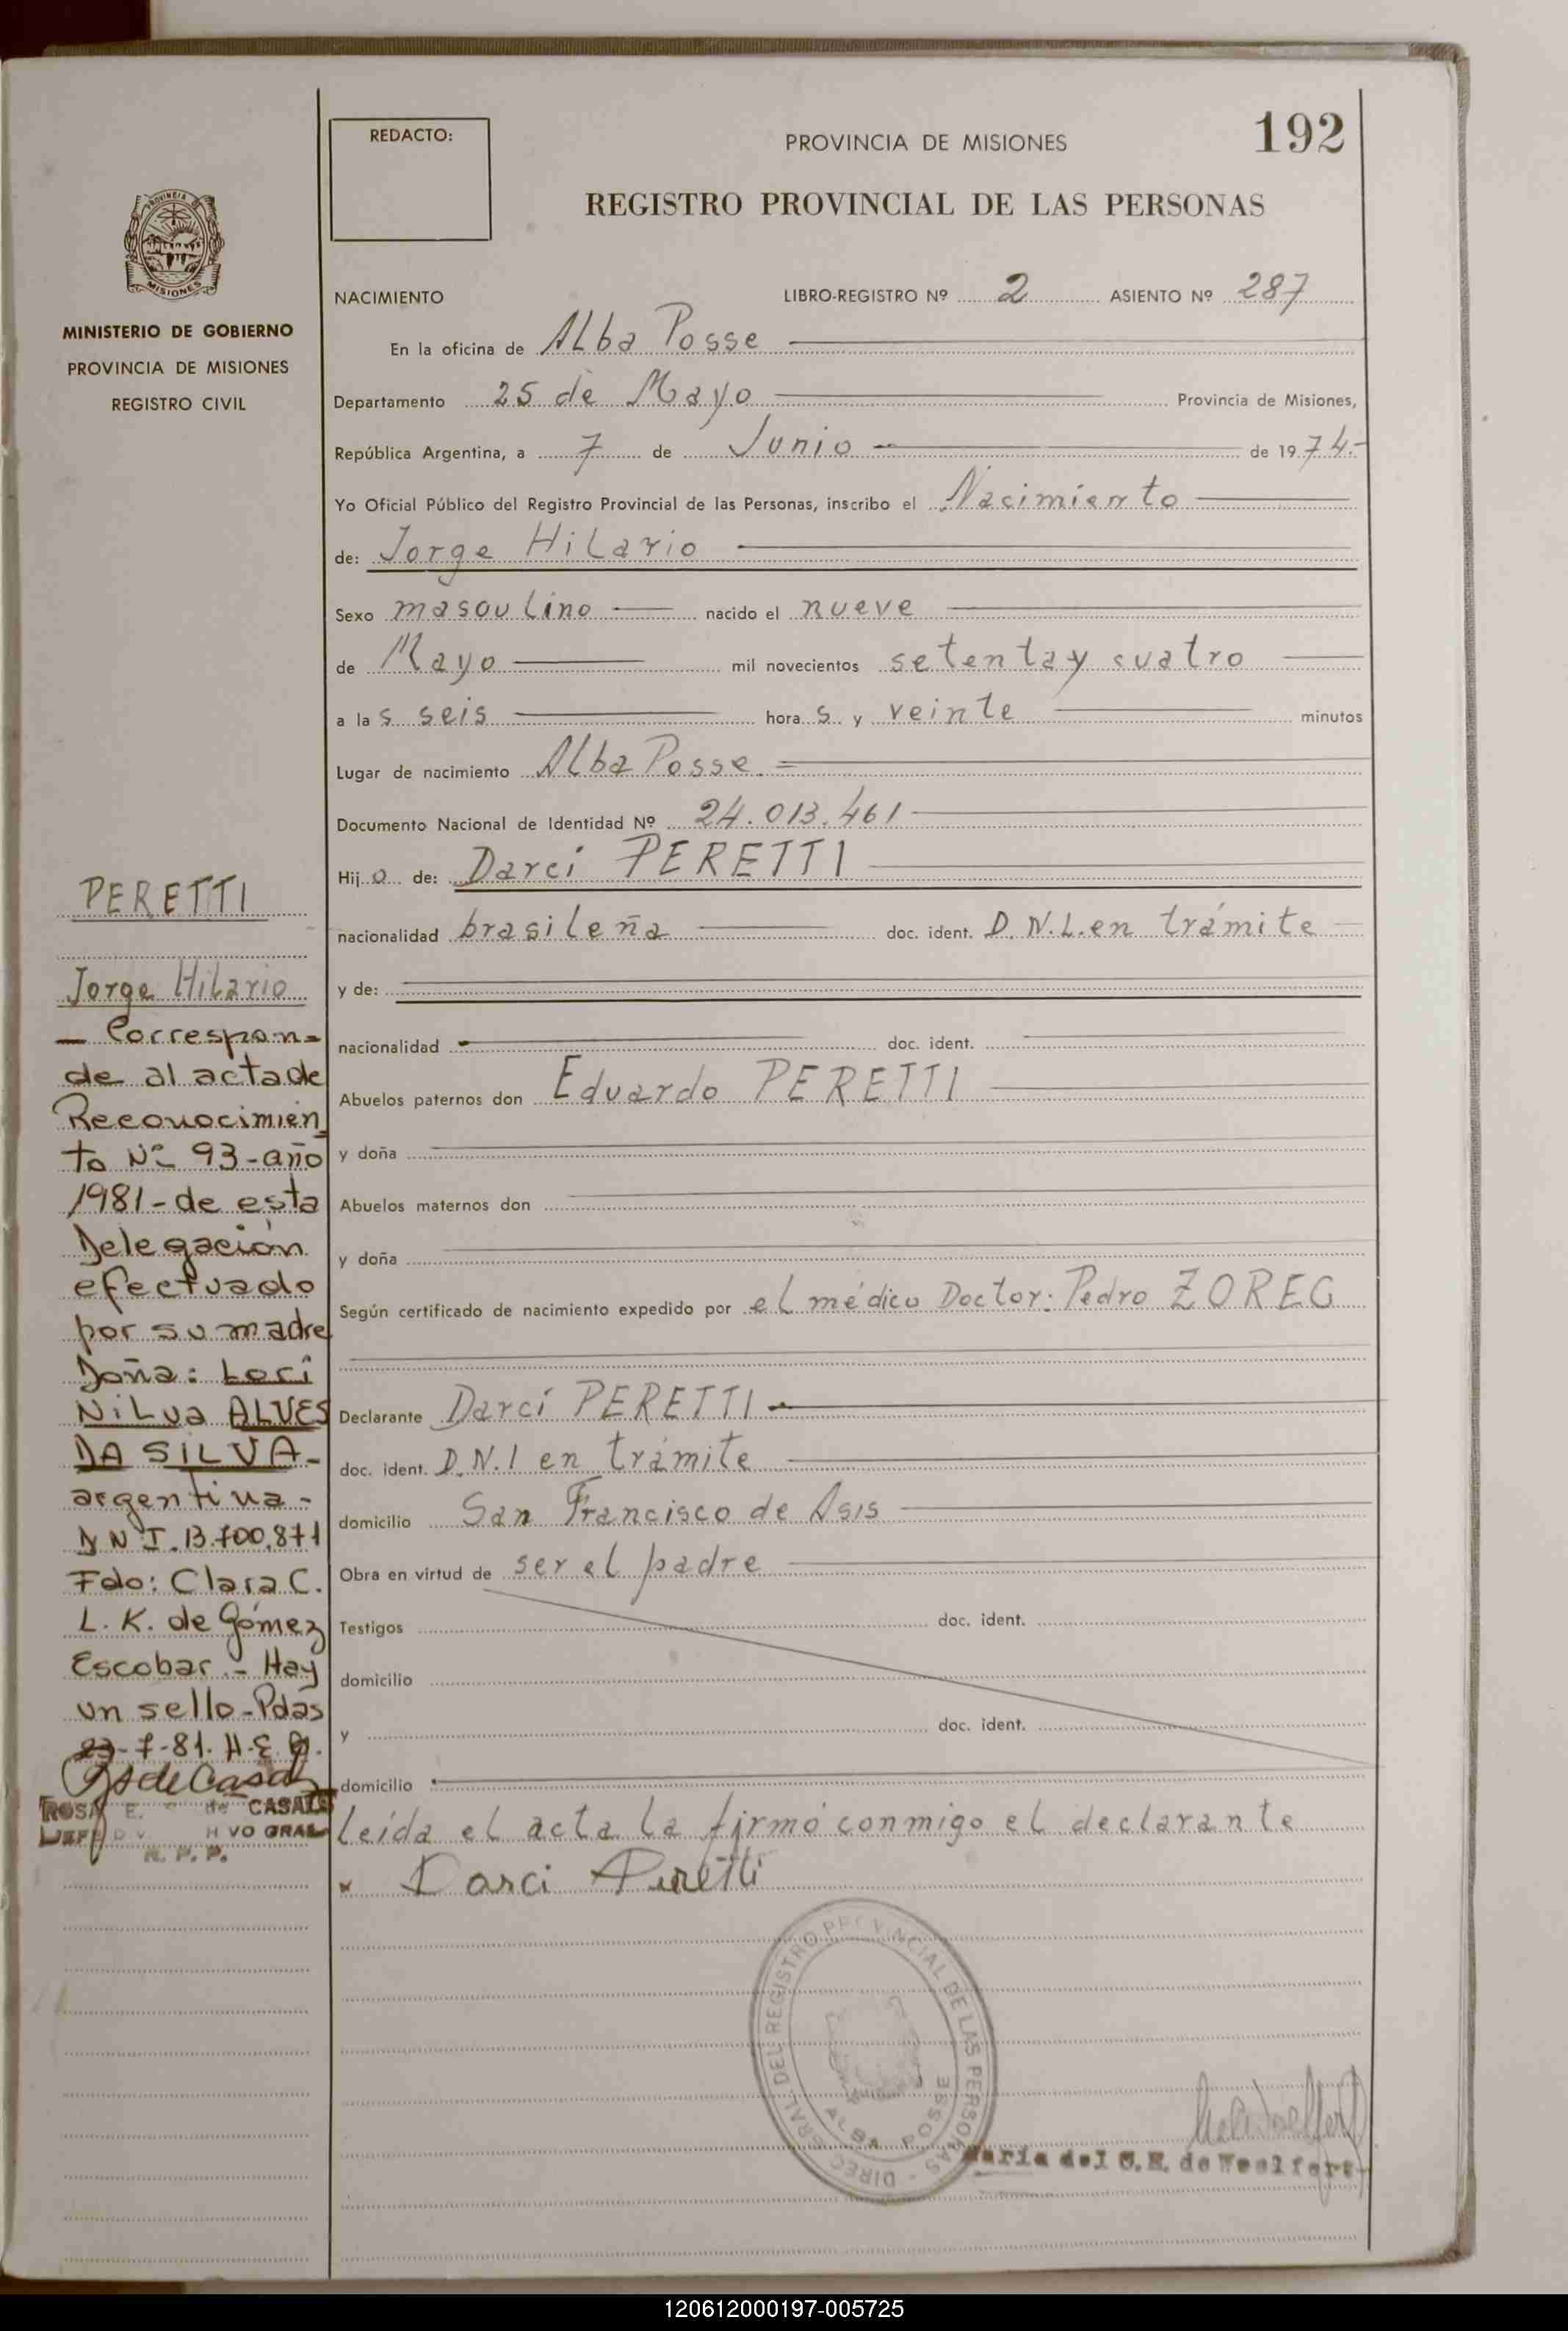 REDACTO:
PROVINCIA DE MISIONES
192
REGISTRO PROVINCIAL DE LAS PERSONAS
MISIONES
MINISTERIO DE GOBIERNO
PROVINCIA DE MISIONES
REGISTRO CIVIL
NACIMIENTO LIBRO-REGISTRO Nº 2 ASIENTO Nº 287
En la oficina de Alba Posse
Departamento 25 de Mayo Provincia de Misiones,
República Argentina, a 7 de Junio de 1974.-
Yo Oficial Público del Registro Provincial de las Personas, inscribo el Nacimiento
de: Jorge Hilario
Sexo masculino nacido el nueve
de Mayo mil novecientos setenta y cuatro
a las seis horas y veinte minutos
Lugar de nacimiento Alba Posse
Documento Nacional de Identidad Nº 24.013.461
Hijo de: Darci PERETTI
nacionalidad brasileña doc. ident. D.N.I. en trámite
y de:
nacionalidad doc. ident.
Abuelos paternos don Eduardo PERETTI
y doña
Abuelos maternos don
y doña
Según certificado de nacimiento expedido por el médico Doctor: Pedro ZOREG
Declarante Darci PERETTI
doc. ident. D.N.I en trámite
domicilio San Francisco de Asis
Obra en virtud de ser el padre
Testigos doc. ident.
domicilio
y doc. ident.
domicilio
leída el acta la firmó conmigo el declarante
x Darci Peretti
PERETTI
Jorge Hilario
- Correspon=
de al acta de
Reconocimien
to Nº 93-año
1981-de esta
Delegación
efectuado
por su madre
Doña: Lori
Nilva ALVES
DA SILVA-
argentina-
DNI.13.700.871
Fdo: Clara C.
L. K. de Gómez
Escobar.- Hay
un sello-Pdas
23-7-81. H.E.
ROSA E. de CASALS
R. P. P.
DIREC GRAL DEL REGISTRO PROVINCIAL DE LAS PERSONAS
ALBA POSSE
María del C. R. de Woelfert
120612000197-005725